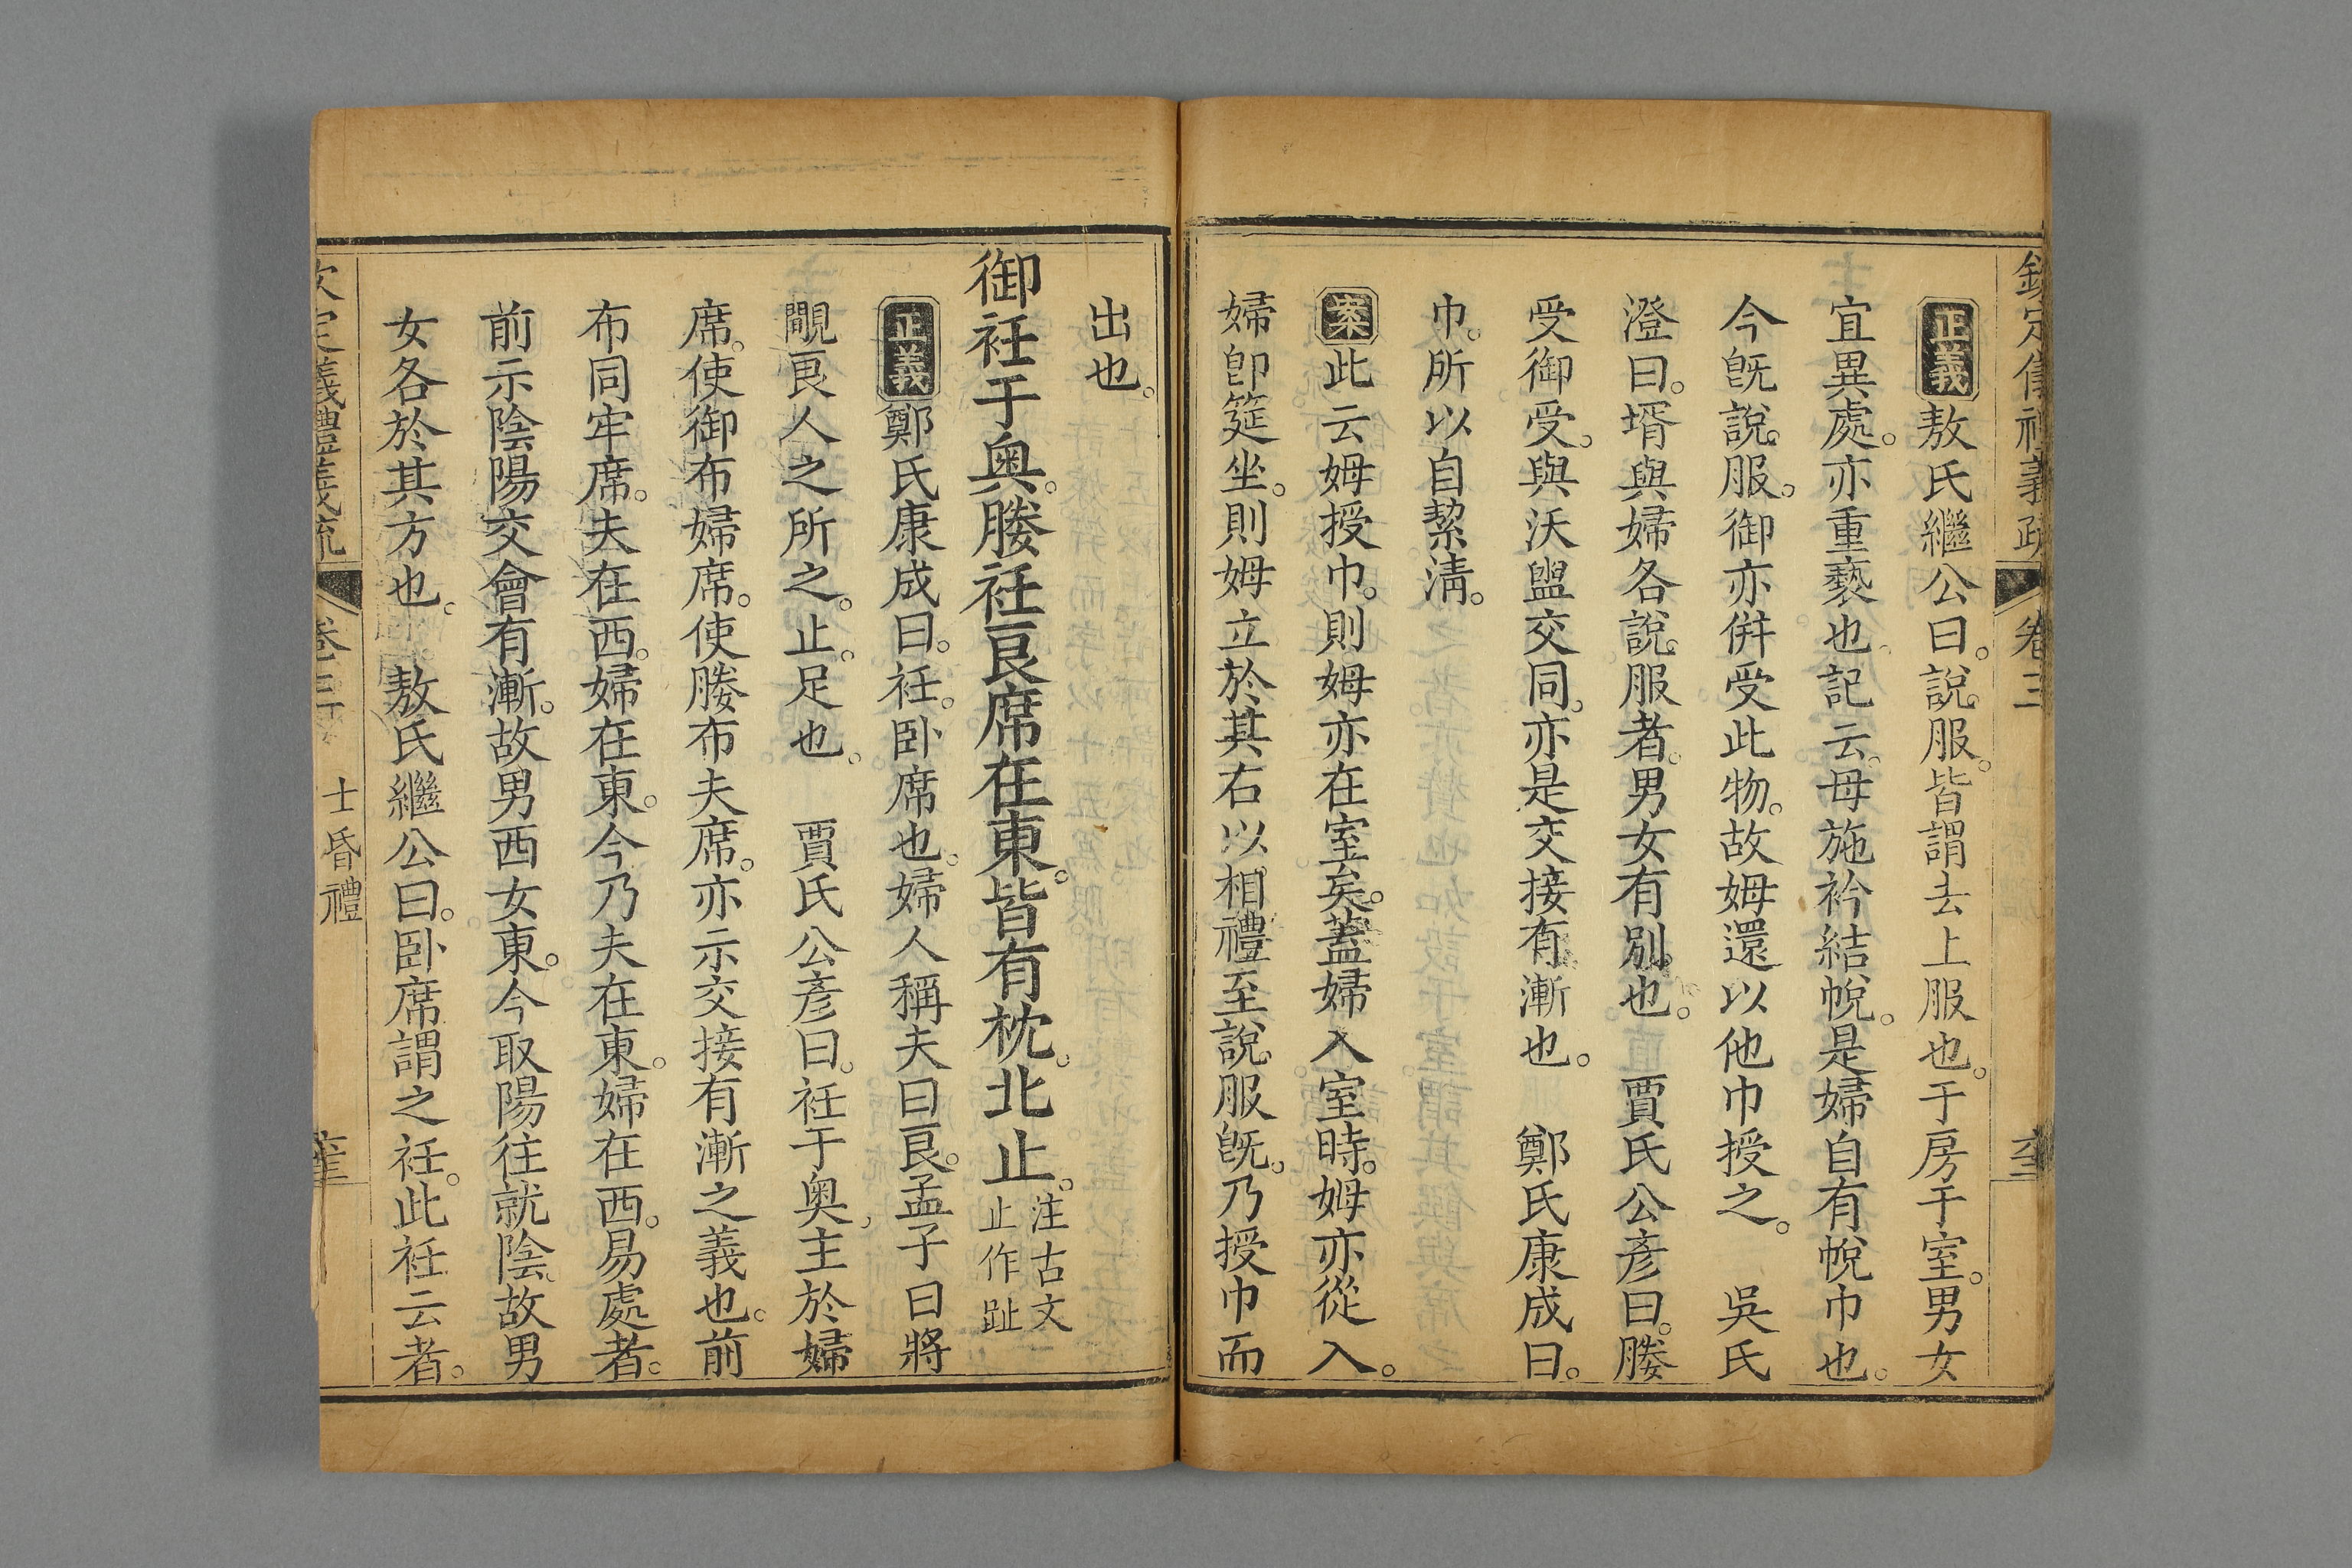 欽定儀禮義疏 卷三
正義敖氏繼公曰。說服。皆謂去上服也。于房于室。男女
宜異處。亦重褻也。記云。母施衿結帨。是婦自有帨巾也。
今旣說服。御亦併受此物。故姆還以他巾授之。 吳氏
澄曰。壻與婦各說服者。男女有別也。 賈氏公彥曰。媵
受御受。與沃盥交同。亦是交接有漸也。 鄭氏康成曰。
巾。所以自潔淸。
案此云姆授巾。則姆亦在室矣。蓋婦入室時。姆亦從入。
婦卽筵坐。則姆立於其右以相禮。至說服旣。乃授巾而
出也。
御衽于奧。媵衽良席在東。皆有枕。北止。注古文
止作趾
正義鄭氏康成曰。衽。卧席也。婦人稱夫曰良。孟子曰將
覸良人之所之。止。足也。 賈氏公彥曰。衽于奧。主於婦
席。使御布婦席。使媵布夫席。亦示交接有漸之義也。前
布同牢席。夫在西。婦在東。今乃夫在東。婦在西。易處者。
前示陰陽交會有漸。故男西女東。今取陽往就陰。故男
女各於其方也。 敖氏繼公曰。卧席謂之衽。此衽云者。
欽定義禮義疏 卷三 士昏禮